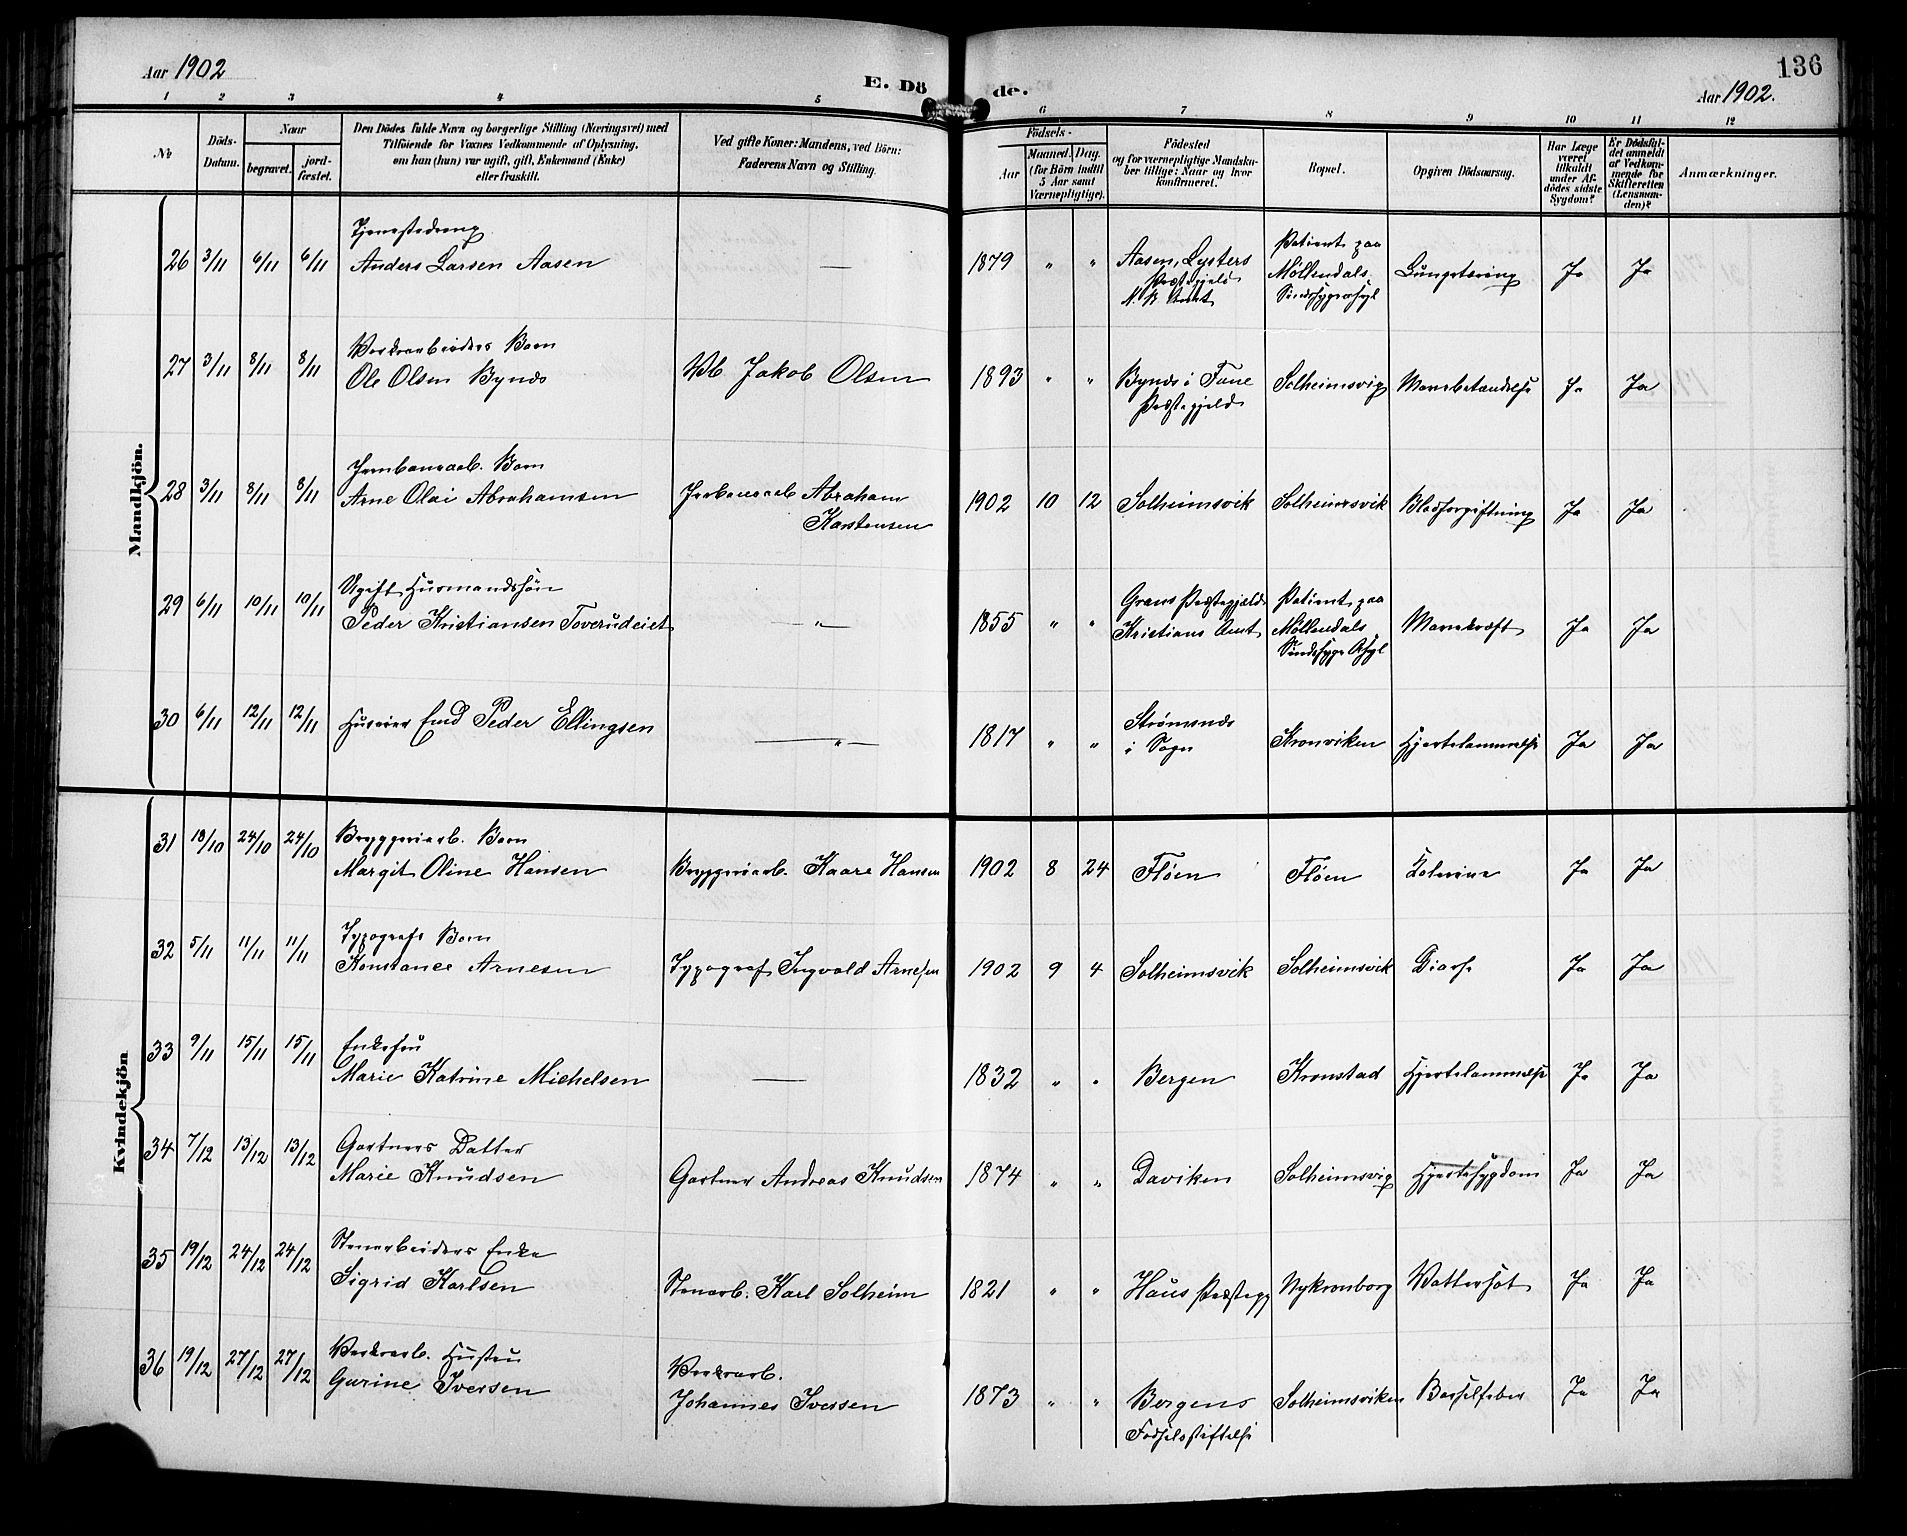 Aar 1902
E. Dö
de.
136
Aar 1902.
1 2 3 4 5 6 7 8 9 10 11 12
No
Döds-
Datum.
Naar
begravet.
jord-
fæstet.
Den Dödes fulde Navn og borgerlige Stilling (Næringsvei) med
Tilföiende for Voxnes Vedkommende af Oplysning,
om han (hun) var ugift, gift, Enkemand (Enke)
eller fraskilt.
Ved gifte Koner: Mandens, ved Börn:
Faderens Navn og Stilling.
Födsels-
Aar
Maaned. Dag.
(for Börn indtil
5 Aar samt
Værnepligtige).
Födested
og for værnepligtige Mandska-
ber tillige: Naar og hvor
konfirmeret.
Bopæl.
Opgiven Dödsaarsag.
Har Læge
været
tilkaldt
under Af-
dödes sidste
Sygdom?
Er Dödsfal-
det anmeldt
af Vedkom-
mende for
Skifteretten
(Lensman-
den)?
Anmærkninger.
Mandkjön.
26 3/11 6/11 6/11 Tjenestedreng
Anders Larsen Aasen — 1879 " " Aasen, Lysters
Præstegjeld
N. B. Amt
Patient paa
Møllendals
Sindssygeasyl
Lungetæring Ja Ja
27 3/11 8/11 8/11 Værkarbeiders Barn
Ole Olsen Bynæs Vb. Jakob Olsen 1893 " " Bynæs i Fane
Præstegjeld
Solheimsvig Mavebetændelse Ja Ja
28 3/11 8/11 8/11 Jernbanearb. Barn
Arne Olai Abrahamsen Jerbanearb Abraham
Karstensen
1902 10 12 Solheimsvik Solheimsvik Blodforgiftning Ja Ja
29 6/11 10/11 10/11 Ugift Husmandssön
Peder Kristiansen Toverudeiet " 1855 " " Grans Præstegjæld
Kristians Amt
Patient paa
Møllendals
Sindssyge Asyl
Mavekræft Ja Ja
30 6/11 12/11 12/11 Huseier Emd Peder Ellingsen " 1817 " " Strømsnæs
i Sogn
Kronviken Hjertelammelse Ja Ja
Kvindekjön
31 18/10 24/10 24/10 Bryggeriarb. Barn
Margit Oline Hansen Bryggeriarb. Kaare Hansen 1902 8 24 Fløen Fløen Kolerine Ja Ja
32 5/11 11/11 11/11 Typografs Barn
Konstance Arnesen Typograf Ingvald Arnesen 1902 9 4 Solheimsvik Solheimsvik Diarse Ja Ja
33 9/11 15/11 15/11 Enkefru
Marie Katrine Michelsen — 1832 " " Bergen Kronstad Hjertelammelse Ja Ja
34 7/12 13/12 13/12 Gartners Datter
Marie Knudsen Gartner Andreas Knudsen 1874 " " Daviken Solheimsvig Hjertesygdom Ja Ja
35 19/12 24/12 24/12 Stenarbeiders Enke
Sigrid Karlsen Stenarb. Karl Solheim 1821 " " Haus Præstegj Nykronborg Vattersot Ja Ja
36 19/12 27/12 27/12 Værkarb. Hustru
Gurine Iversen Værkarb.
Johannes Iversen 1873 " " Bergens
Fødselsstiftelse
Solheimsviken Barselfeber Ja Ja